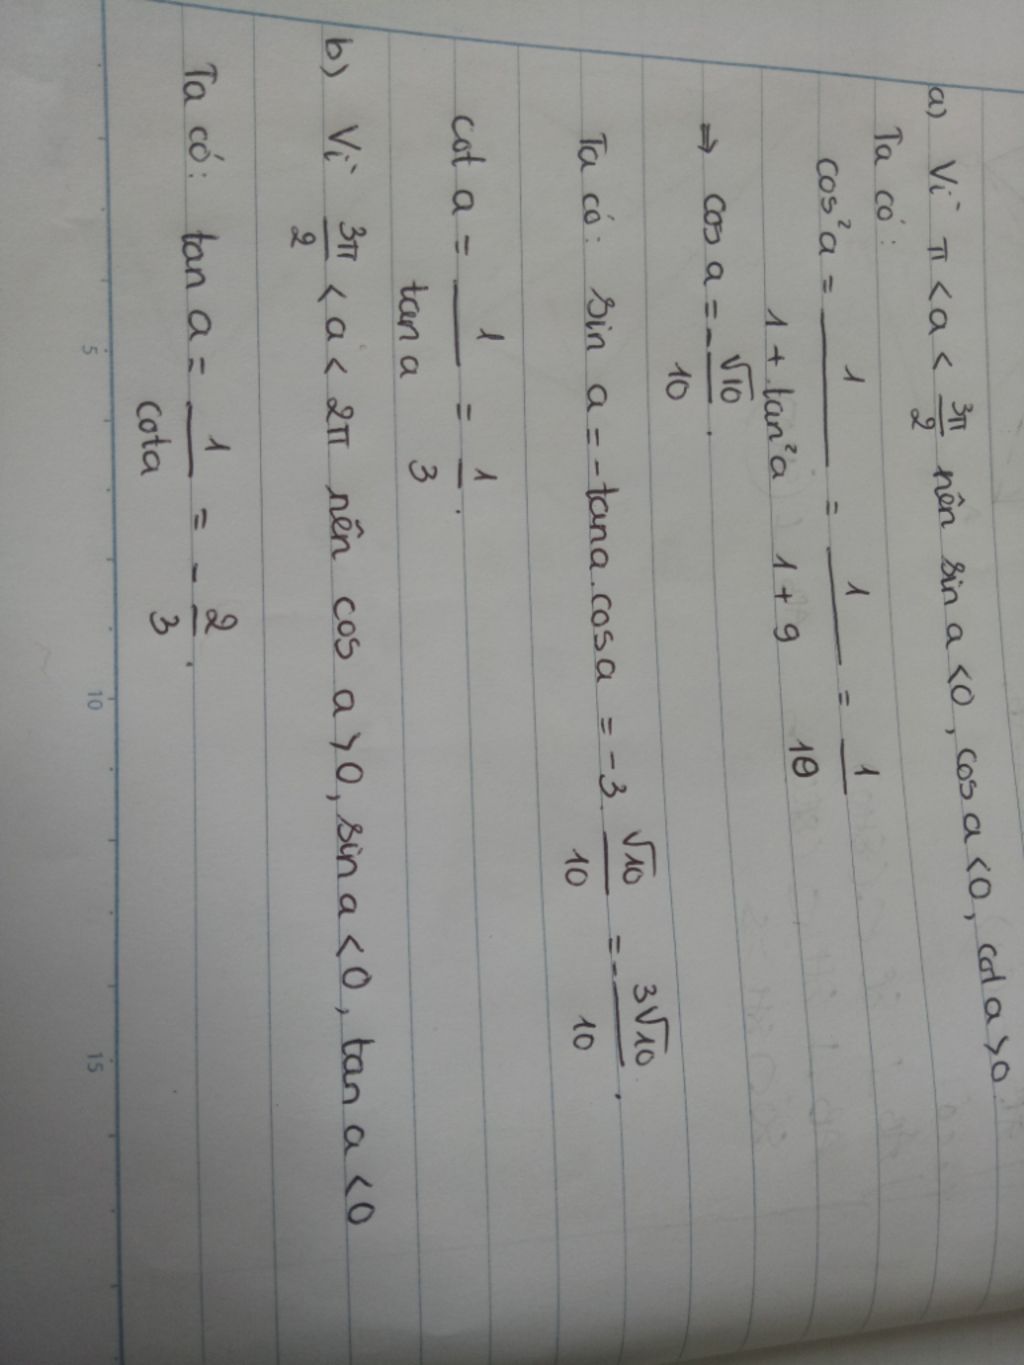 a) Vì π < a < 3π/2 nên sin a < 0, cos a < 0, cot a > 0
Ta có:
cos²a = 1/(1 + tan²a) = 1/(1 + 9) = 1/10
⇒ cos a = -√10/10.
Ta có: sin a = -tan a . cos a = -3 . √10/10 = -3√10/10.
cot a = 1/tan a = 1/3.
b) Vì 3π/2 < a < 2π nên cos a > 0, sin a < 0, tan a < 0
Ta có: tan a = 1/cot a = -2/3.
5 10 15